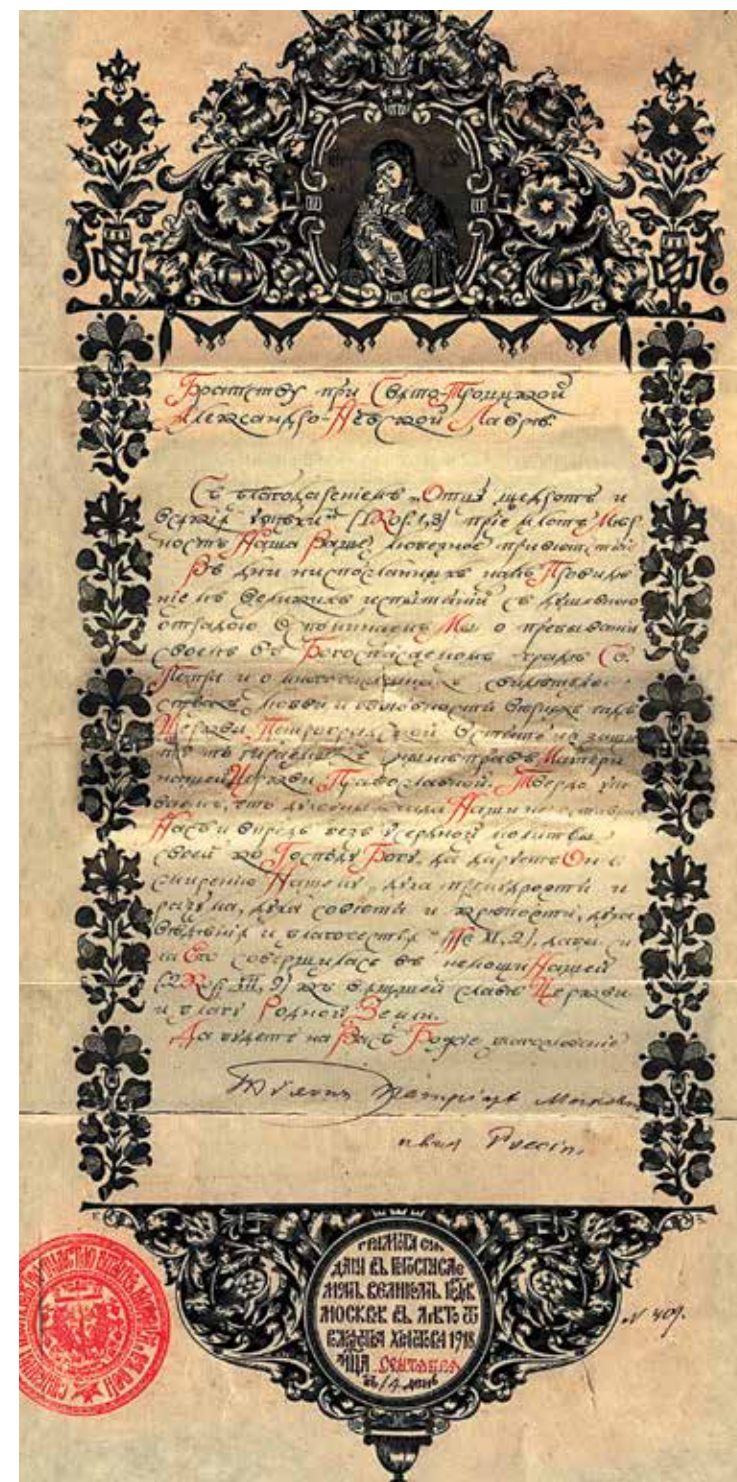 Братству при Свято-Троицкой
Александро-Невской Лаврѣ.
Съ благодаренiемъ „Отцу щедротъ и
всякiя утѣхи“ (IКор. 1, 3) прiемлетъ Мѣр
ность Наша Ваше любезное привѣтствiе
Въ дни ниспосланныхъ намъ Провидѣ
нiемъ великихъ испытанiй съ душевною
отрадою вспоминаемъ Мы о пребыванiи
своемъ въ Богоспасаемомъ градѣ Св.
Петра и о многочисленныхъ свидѣтель
ствахъ любви и
Церкви Петроградской
нынѣ правъ Матери
нашей Церкви Православной. Твердо упо
ваемъ, что духовныя чада Наши не оставятъ
Насъ и впредь безъ усердной молитвы
своей ко Господу Богу, да даруетъ Онъ
смиренiю Нашему „духа премудрости и
разума, духа совѣта и крѣпости, духа
вѣдѣнiя и благочестiя“ (Ис XI, 2), дабы си
ла Его совершилась въ немощи Нашей
(2Кор. XII, 9) къ вящшей славѣ Церкви
и благу Родной Земли.
Да будетъ на Васъ Божiе благословенiе
Тихонъ Патрiархъ Московскiй
и всея Россiи
ГРАМОТА СIЯ
ДАНА ВЪ БОГОСПАСАЕ
МОМЪ ВЕЛИКОМЪ ГРАДѢ
МОСКВѢ ВЪ ЛѢТО ОТ
РОЖДЕСТВА ХРИСТОВА 1918
МѢСЯЦА Сентября
въ 14 день
N 409.